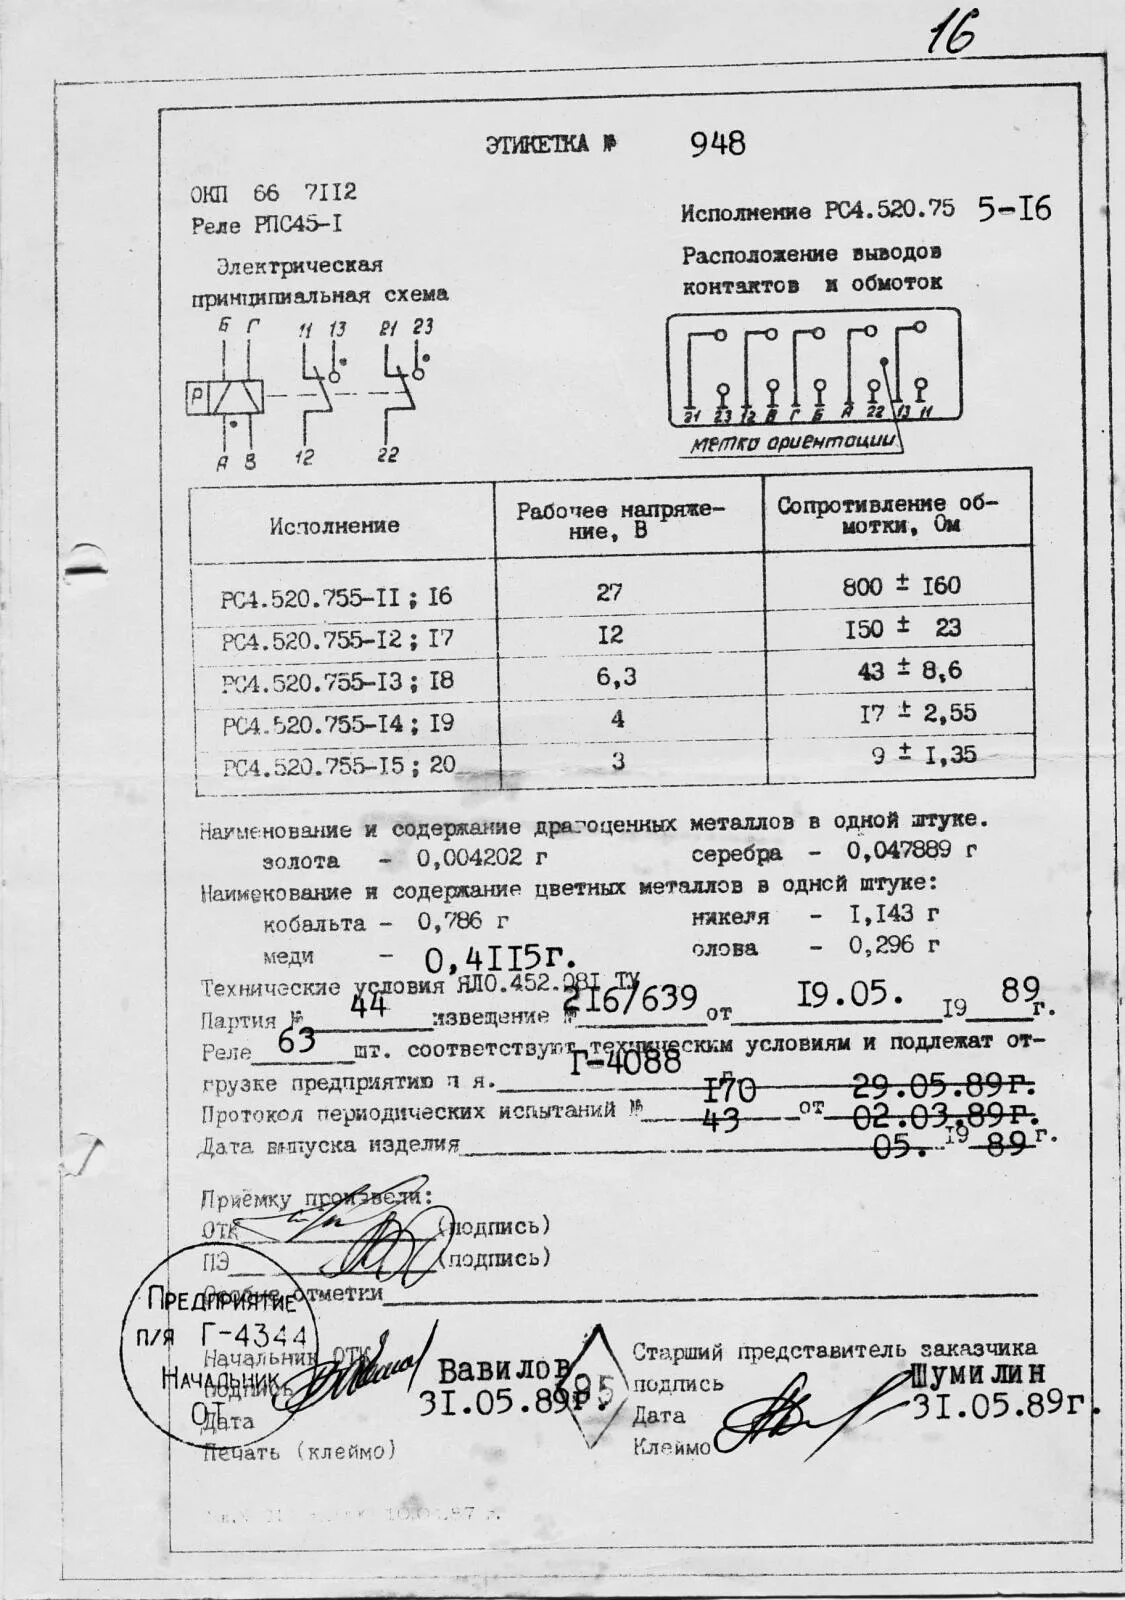 16
ЭТИКЕТКА № 948
ОКП 66 7112
Реле РПС45-1
Исполнение РС4.520.75 5-16
Электрическая
принципиальная схема
Расположение выводов
контактов и обмоток
Б Г 11 13 21 23
Р
А В 12 22
21 23 12 В Г Б А 22 13 11
метка ориентации
Исполнение Рабочее напряже- Сопротивление об-
ние, В мотки, Ом
РС4.520.755-11; 16 27 800 ± 160
РС4.520.755-12; 17 12 150 ± 23
РС4.520.755-13; 18 6,3 43 ± 8,6
РС4.520.755-14; 19 4 17 ± 2,55
РС4.520.755-15; 20 3 9 ± 1,35
Наименование и содержание драгоценных металлов в одной штуке.
золота - 0,004202 г серебра - 0,047889 г
Наименование и содержание цветных металлов в одной штуке:
кобальта - 0,786 г никеля - 1,143 г
меди - 0,4115г. олова - 0,296 г
Технические условия ЯЛО.452.081 ТУ
Партия № 44 извещение № 216/639 от 19.05. 19 89 г.
Реле 63 шт. соответствуют техническим условиям и подлежат от-
грузке предприятию п я. Г-4088
Протокол периодических испытаний № 170 от 29.05.89г.
43 02.03.89г.
Дата выпуска изделия 05. 19 89 г.
Приёмку произвели:
ОТК (подпись)
ПЭ (подпись)
Особые отметки
Предприятие
п/я Г-4344
Начальник
ОТ
Начальник ОТК Вавилов
Подпись
Дата 31.05.89г.
Печать (клеймо)
95
Старший представитель заказчика
подпись Шумилин
Дата 31.05.89г.
Клеймо